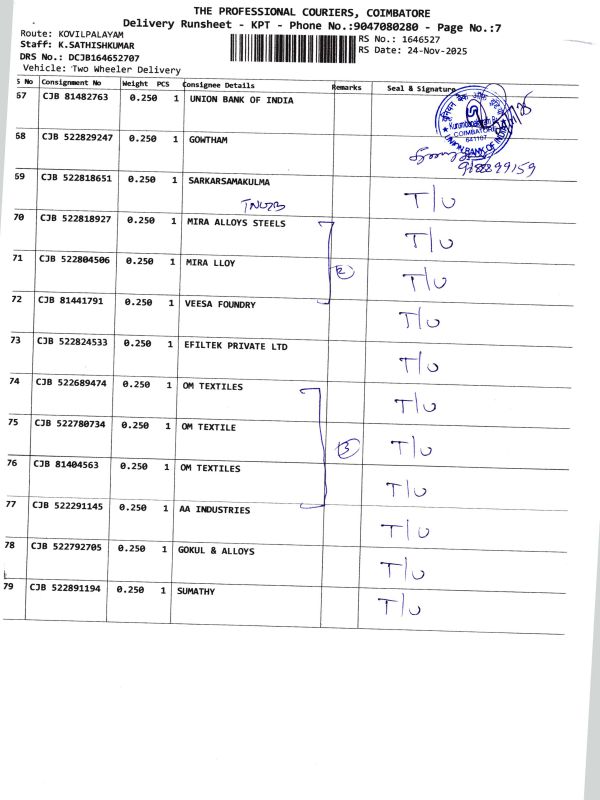 THE PROFESSIONAL COURIERS, COIMBATORE
Delivery Runsheet - KPT - Phone No.:9047080280 - Page No.:7
Route: KOVILPALAYAM
RS No.: 1646527
Staff: K.SATHISHKUMAR
RS Date: 24-Nov-2025
DRS No.: DCJB164652707
Vehicle: Two Wheeler Delivery
S No Consignment No Weight PCS Consignee Details Remarks Seal & Signature
67 CJB 81482763 0.250 1 UNION BANK OF INDIA
COIMBATORE
641107
UNION BANK OF INDIA
68 CJB 522829247 0.250 1 GOWTHAM
69 CJB 522818651 0.250 1 SARKARSAMAKULMA T/U
70 CJB 522818927 0.250 1 MIRA ALLOYS STEELS T/U
71 CJB 522804506 0.250 1 MIRA LLOY 2 T/U
72 CJB 81441791 0.250 1 VEESA FOUNDRY T/U
73 CJB 522824533 0.250 1 EFILTEK PRIVATE LTD T/U
74 CJB 522689474 0.250 1 OM TEXTILES T/U
75 CJB 522780734 0.250 1 OM TEXTILE 3 T/U
76 CJB 81404563 0.250 1 OM TEXTILES T/U
77 CJB 522291145 0.250 1 AA INDUSTRIES T/U
78 CJB 522792705 0.250 1 GOKUL & ALLOYS T/U
79 CJB 522891194 0.250 1 SUMATHY T/U